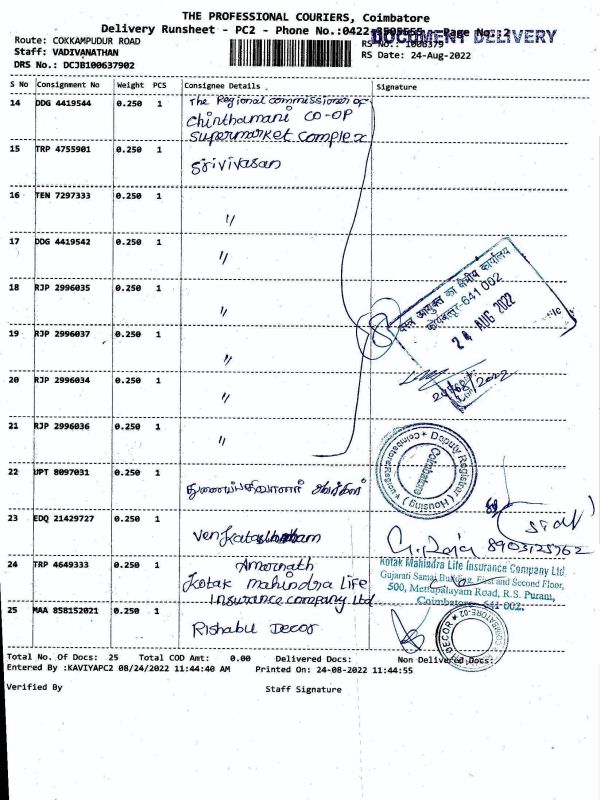 THE PROFESSIONAL COURIERS, Coimbatore
Delivery Runsheet - PC2 - Phone No.:0422 3505555 Page No.:2
DOCUMENT DELIVERY
Route: COKKAMPUDUR ROAD
RS No.: 1008379
Staff: VADIVANATHAN
RS Date: 24-Aug-2022
DRS No.: DCJB100637902
S No Consignment No Weight PCS Consignee Details Signature
14 DDG 4419544 0.250 1 The Regional commissioner of
Chinthamani CO-OP
Supermarket complex
15 TRP 4755901 0.250 1 Srivivasan
16 TEN 7297333 0.250 1 "
17 DDG 4419542 0.250 1 "
18 RJP 2996035 0.250 1 "
19 RJP 2996037 0.250 1 "
20 RJP 2996034 0.250 1 "
21 RJP 2996036 0.250 1 "
वस्त्र आयुक्त का क्षेत्रीय कार्यालय
कोयम्बत्तूर-641 002
24 AUG 2022
24/08/2022
Deputy Registrar (Housing)
Coimbatore Region
Coimbatore
22 UPT 8097031 0.250 1
23 EDQ 21429727 0.250 1
G. Raja 8903125762
24 TRP 4649333 0.250 1 Amornath
Kotak mahindra Life
Insurance company Ltd
Kotak Mahindra Life Insurance Company Ltd.
Gujarati Samaj Building, First and Second Floor,
500, Mettupalayam Road, R.S. Puram,
Coimbatore - 641 002.
25 MAA 858152021 0.250 1 Rishabu Decor
Total No. Of Docs: 25 Total COD Amt: 0.00 Delivered Docs: Non Delivered Docs:
Entered By :KAVIYAPC2 08/24/2022 11:44:40 AM Printed On: 24-08-2022 11:44:55
Verified By Staff Signature